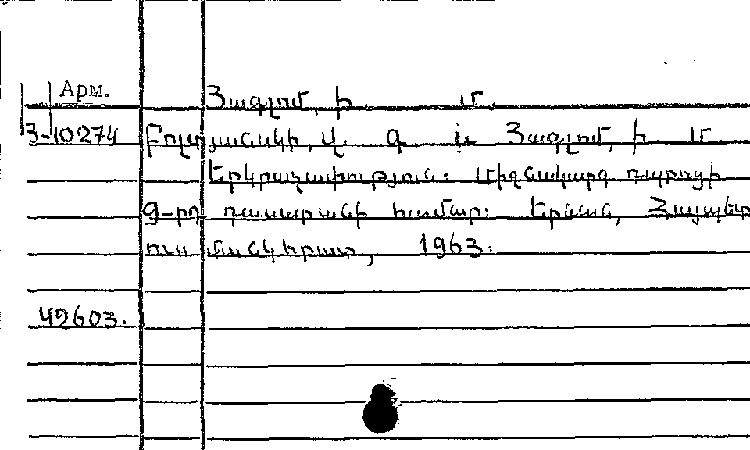 Арм.
Յագլոմ, Ի. Մ.
3-10274 Բոլտյանսկի, Վ. Գ. և Յագլոմ, Ի. Մ
Երկրաչափություն: Միջնակարգ դպրոցի
9-րդ դասարանի համար: Երևան, Հայպետ
ուսմանկհրատ, 1963:
42603.